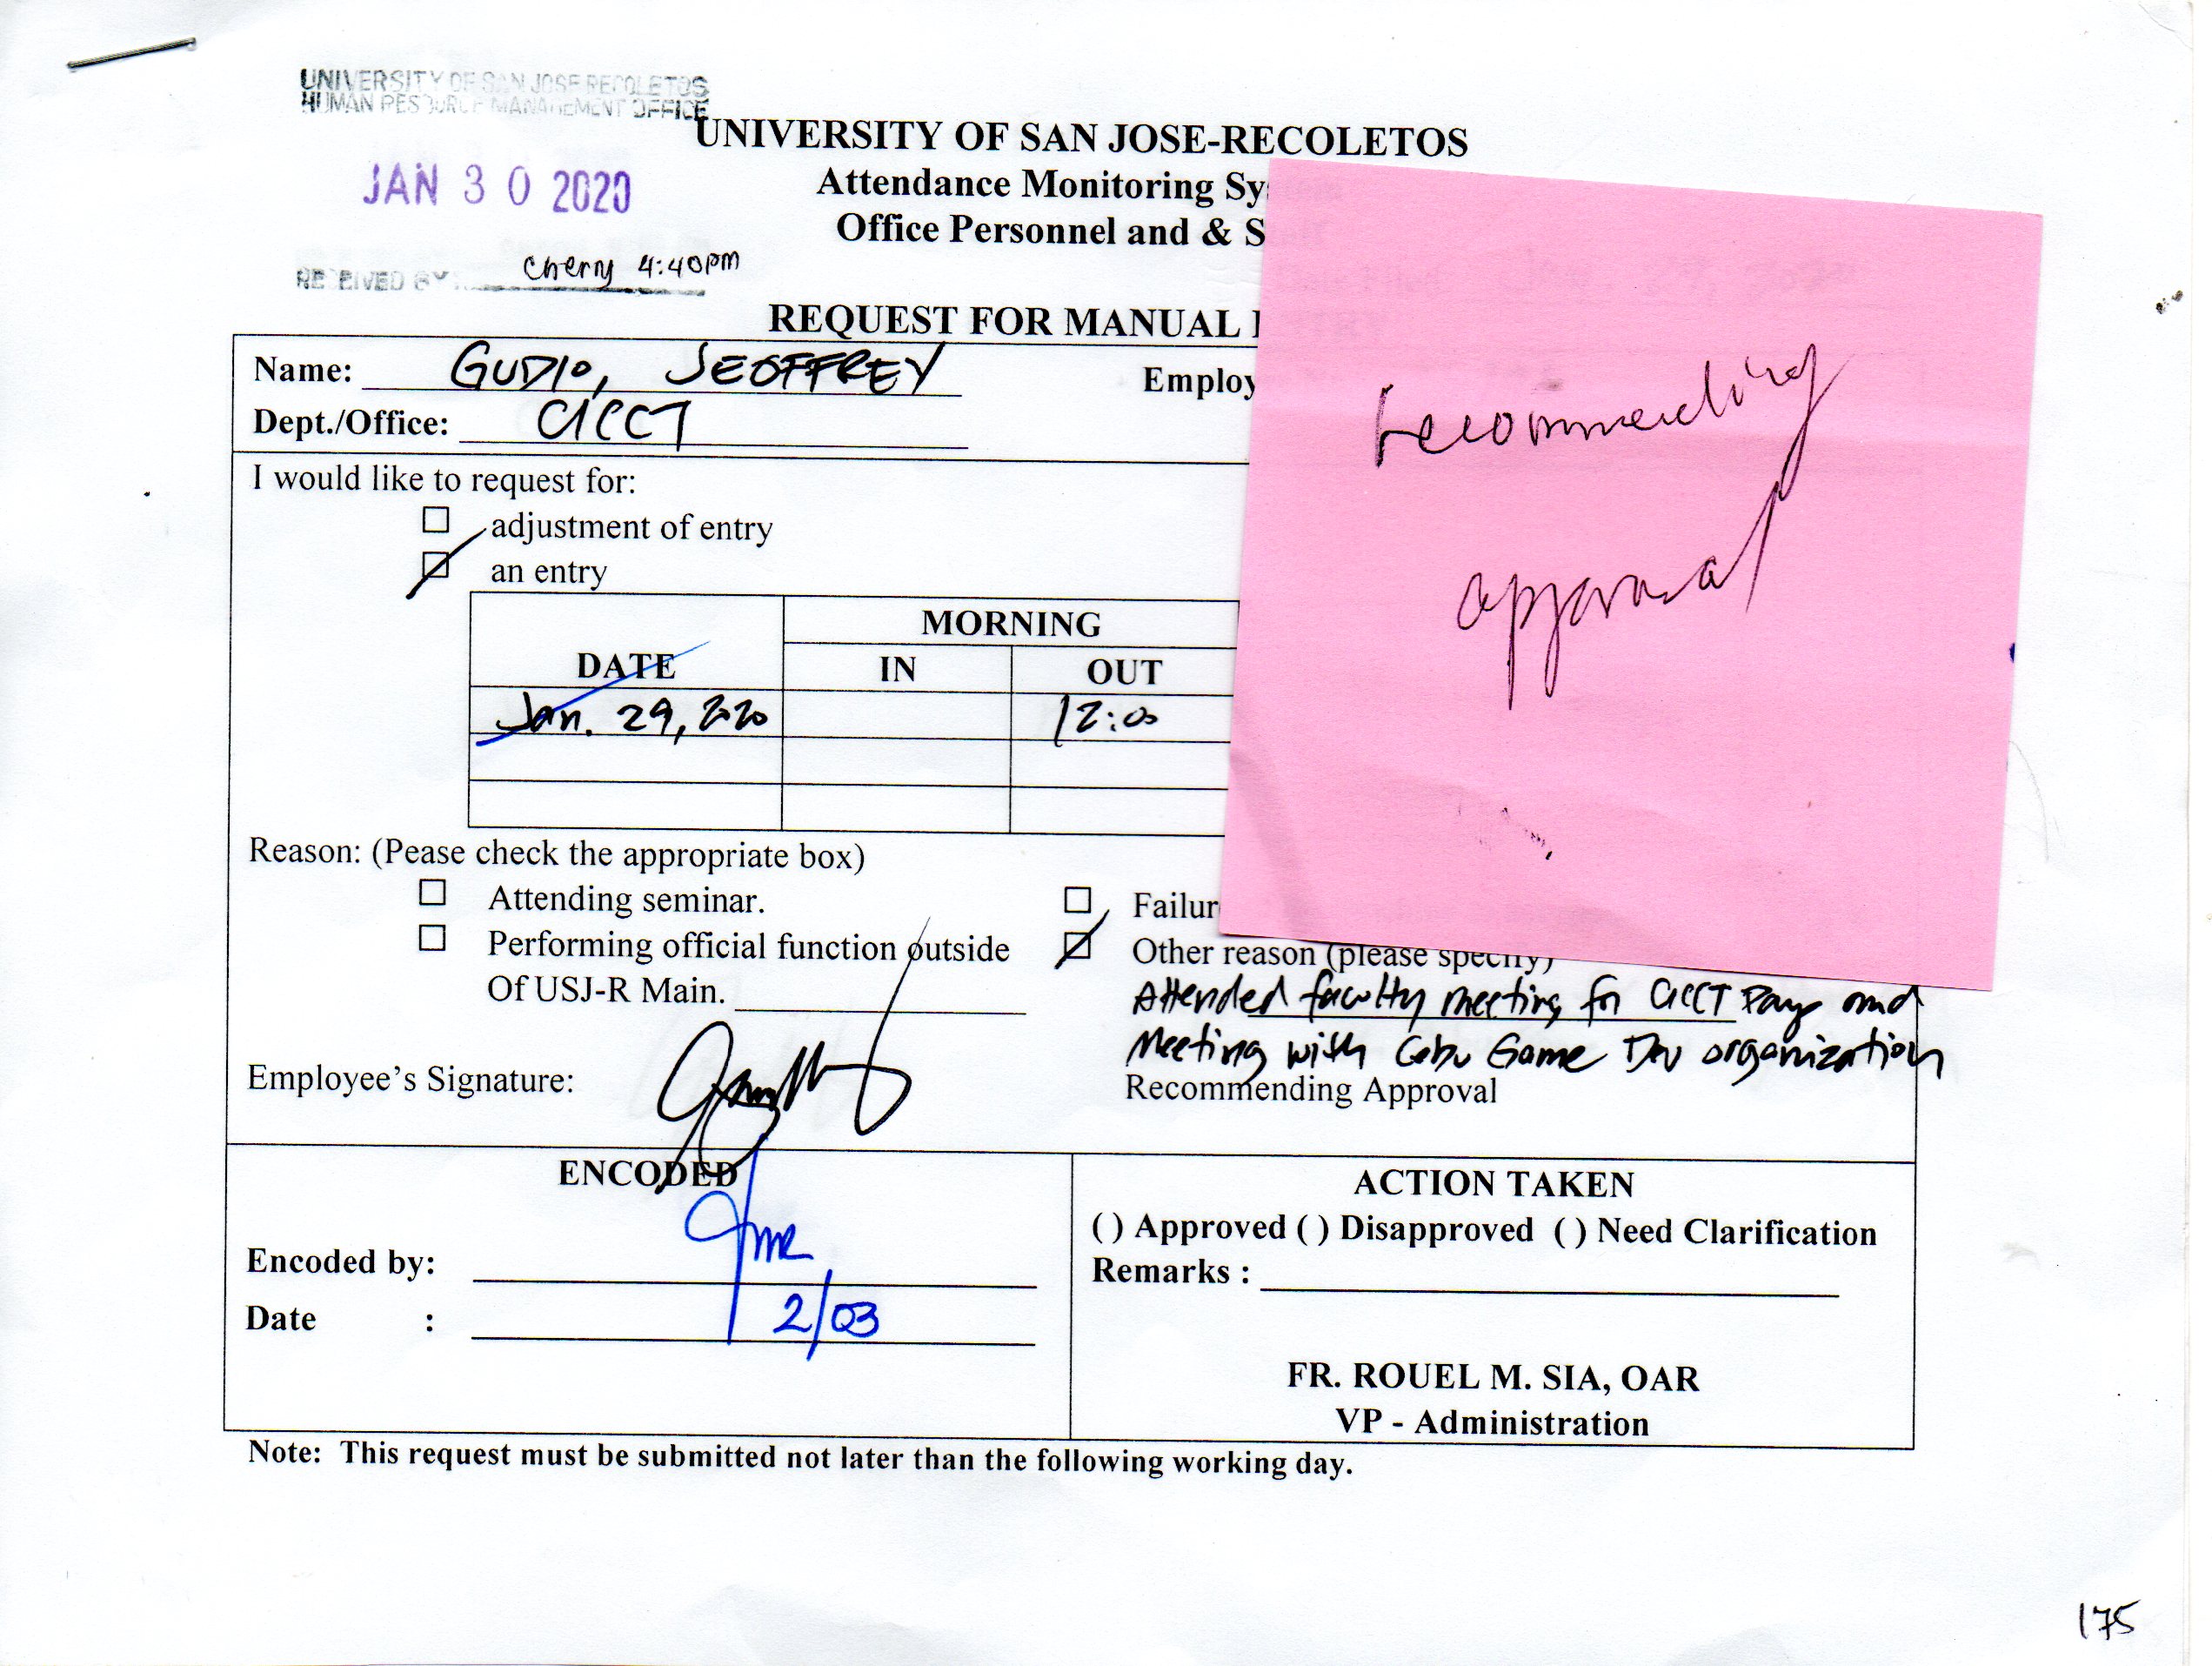 UNIVERSITY OF SAN JOSE RECOLETOS
HUMAN RESOURCE MANAGEMENT OFFICE
JAN 30 2020
RECEIVED BY: Cherry 4:40pm
UNIVERSITY OF SAN JOSE-RECOLETOS
Attendance Monitoring Sy
Office Personnel and & S
REQUEST FOR MANUAL
Name: GUDIO, JEOFFREY Employ
Dept./Office: CICCT
recommending
approval
I would like to request for:
adjustment of entry
an entry
MORNING
DATE IN OUT
Jan. 29, 2020 12:00
Reason: (Pease check the appropriate box)
Attending seminar. Failur
Performing official function outside Other reason (please specify)
Of USJ-R Main. Attended faculty meeting for CICCT Days and
Meeting with Cebu Game Dev organization
Employee's Signature: Recommending Approval
ENCODED ACTION TAKEN
( ) Approved ( ) Disapproved ( ) Need Clarification
Encoded by: Remarks :
Date : 2/03
FR. ROUEL M. SIA, OAR
VP - Administration
Note: This request must be submitted not later than the following working day.
175